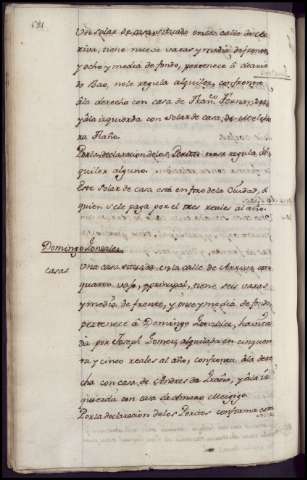 Un solar de casa situado en la calle de
riva, tiene nueve varas y media de frente,
y ocho y media de fondo, pertenece a
Bao, no le regula alquiler, confronta
a la derecha con casa de Fran.co Fernandez,
y a la izquierda con solar de casa, de
Por la declaracion de los Peritos no se regula al-
quiler alguno.
Este Solar de casa está en foro de la Ciudad, á
quien se le paga por el tres reales al año.
Domingo Gonzalez
casas
Una casa situada, en la calle de Arriva, con
quarto vajo, y principal, tiene seis varas
y media de frente, y onze y media de fondo
pertenece á Domingo Gonzalez, havita-
da por Joseph Gomez, alquilada en cinquen-
ta y cinco reales al año, confronta á la dere-
cha con casa de Andres da Braña, y á la iz-
quierda con casa de Antonio
Por la declaracion de los Peritos conforma con